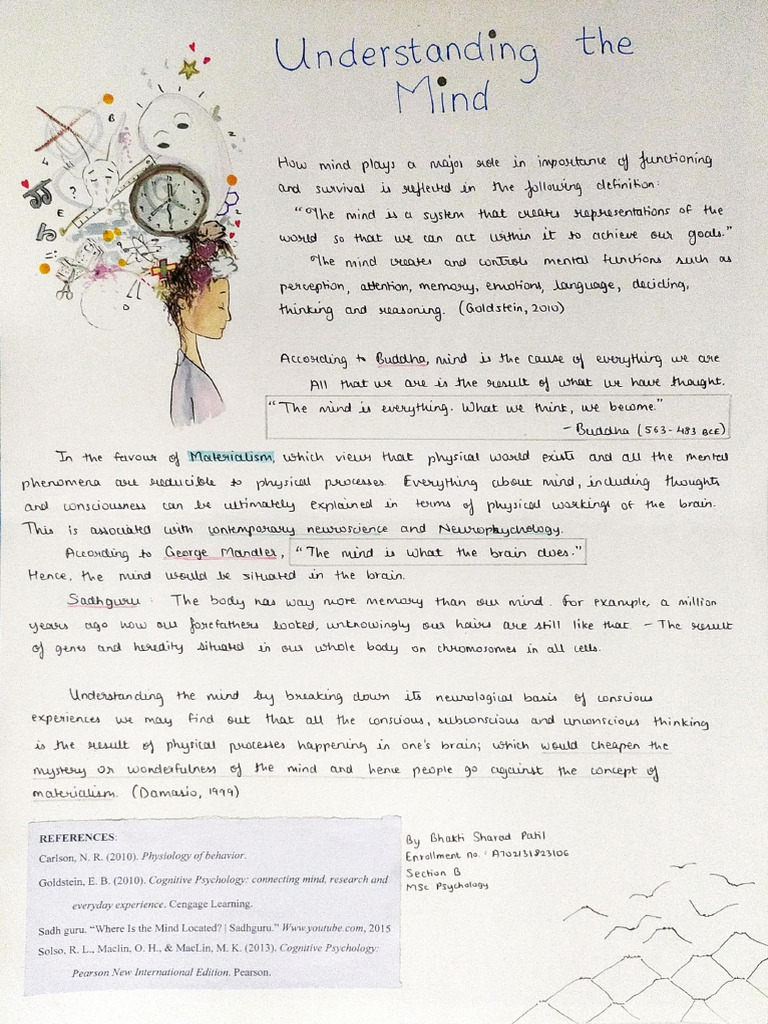 Understanding the
Mind
How mind plays a major role in importance of functioning
and survival is reflected in the following definition:
"The mind is a system that creates representations of the
world so that we can act within it to achieve our goals."
The mind creates and controls mental functions such as
perception, attention, memory, emotions, language, deciding,
thinking and reasoning. (Goldstein, 2010)
According to Buddha, mind is the cause of everything we are
All that we are is the result of what we have thought.
"The mind is everything. What we think, we become."
- Buddha (563-483 BCE)
In the favour of Materialism, which views that physical world exists and all the mental
phenomena are reducible to physical processes. Everything about mind, including thoughts
and consciousness can be ultimately explained in terms of physical workings of the brain.
This is associated with contemporary neuroscience and Neurophychology.
According to George Mandler, "The mind is what the brain does."
Hence, the mind would be situated in the brain.
Sadhguru : The body has way more memory than our mind. For example, a million
years ago how our forefathers looked, unknowingly our hairs are still like that. - The result
of genes and heredity situated in our whole body on chromosomes in all cells.
Understanding the mind by breaking down its neurological basis of conscious
experiences we may find out that all the conscious, subconscious and unconscious thinking
is the result of physical processes happening in one's brain; which would cheapen the
mystery or wonderfulness of the mind and hence people go against the concept of
materialism. (Damasio, 1999)
REFERENCES:
Carlson, N. R. (2010). Physiology of behavior.
Goldstein, E. B. (2010). Cognitive Psychology: connecting mind, research and
everyday experience. Cengage Learning.
Sadh guru. "Where Is the Mind Located? | Sadhguru." Www.youtube.com, 2015
Solso, R. L., Maclin, O. H., & MacLin, M. K. (2013). Cognitive Psychology:
Pearson New International Edition. Pearson.
By Bhakti Sharad Patil
Enrollment no. : A702131823106
Section B
MSc Psychology